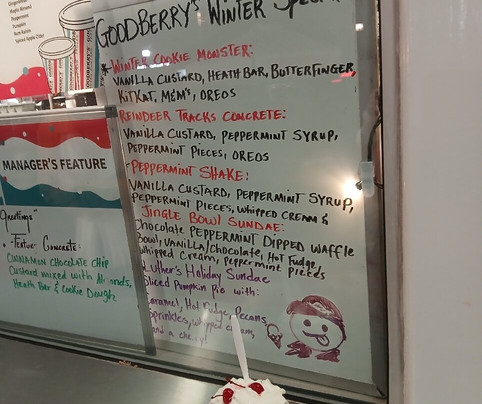 Gingerbread
Maple Almond
Peppermint
Pumpkin
Rum Raisin
Spiced Apple Cider
GOODBERRY'S WINTER
* WINTER COOKIE MONSTER:
VANILLA CUSTARD, HEATH BAR, BUTTERFINGER,
KITKAT, M&M's, OREOS
REINDEER TRACKS CONCRETE:
VANILLA CUSTARD, PEPPERMINT SYRUP,
PEPPERMINT PIECES, OREOS
- PEPPERMINT SHAKE:
VANILLA CUSTARD, PEPPERMINT SYRUP,
PEPPERMINT PIECES, WHIPPED CREAM &
JINGLE BOWL SUNDAE:
Chocolate PEPPERMINT DIPPED WAFFLE
Bowl, VANILLA/CHOCOLATE, HOT FUDGE,
Whipped Cream, PEPPERMINT PIECES
Luther's Holiday Sundae
Sliced Pumpkin Pie with:
Caramel, Hot Fudge, Pecans,
Sprinkles, whipped cream,
and a cherry!
MANAGER'S FEATURE
Greetings"
• "Festive" Concrete:
CINNAMON CHOCOLATE CHIP
Custard mixed with Almonds,
Heath Bar & Cookie Dough